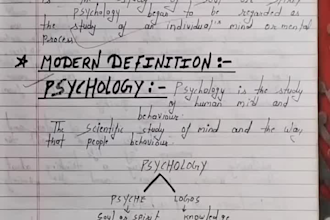 psychology began to be regarded as
the study of an individual's mind or mental
process.
★ MODERN DEFINITION :-
PSYCHOLOGY :- Psychology is the study
of human mind and
behaviour.
The scientific study of mind and the way
that people behaviour.
PSYCHOLOGY
PSYCHE LOGOS
Soul or spirit knowledge